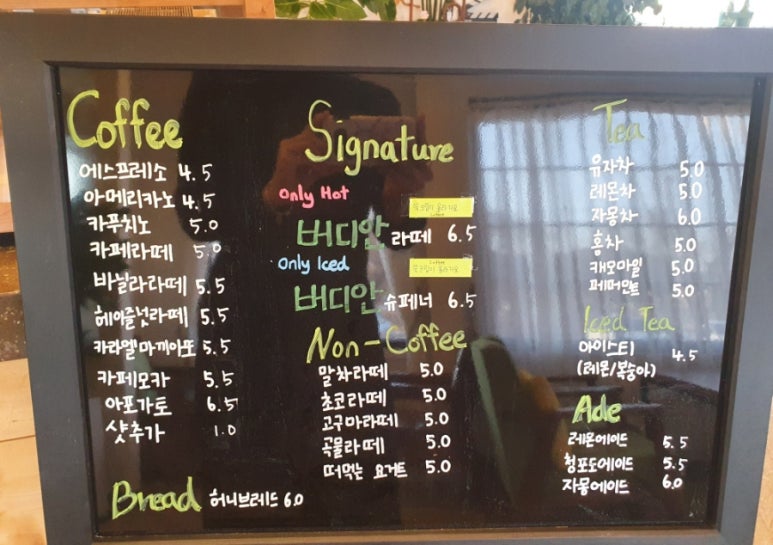 Coffee
에스프레소 4.5
아메리카노 4.5
카푸치노 5.0
카페라떼 5.0
바닐라라떼 5.5
헤이즐넛라떼 5.5
카라멜마끼아또 5.5
카페모카 5.5
아포가토 6.5
샷추가 1.0
Bread 허니브레드 6.0
Signature
Only Hot
버디안 라떼 6.5
Only Iced
버디안 슈페너 6.5
Non-Coffee
말차라떼 5.0
초코라떼 5.0
고구마라떼 5.0
곡물라떼 5.0
떠먹는 요거트 5.0
Tea
유자차 5.0
레몬차 5.0
자몽차 6.0
홍차 5.0
캐모마일 5.0
페퍼민트 5.0
Iced Tea
아이스티 4.5
(레몬/복숭아)
Ade
레몬에이드 5.5
청포도에이드 5.5
자몽에이드 6.0